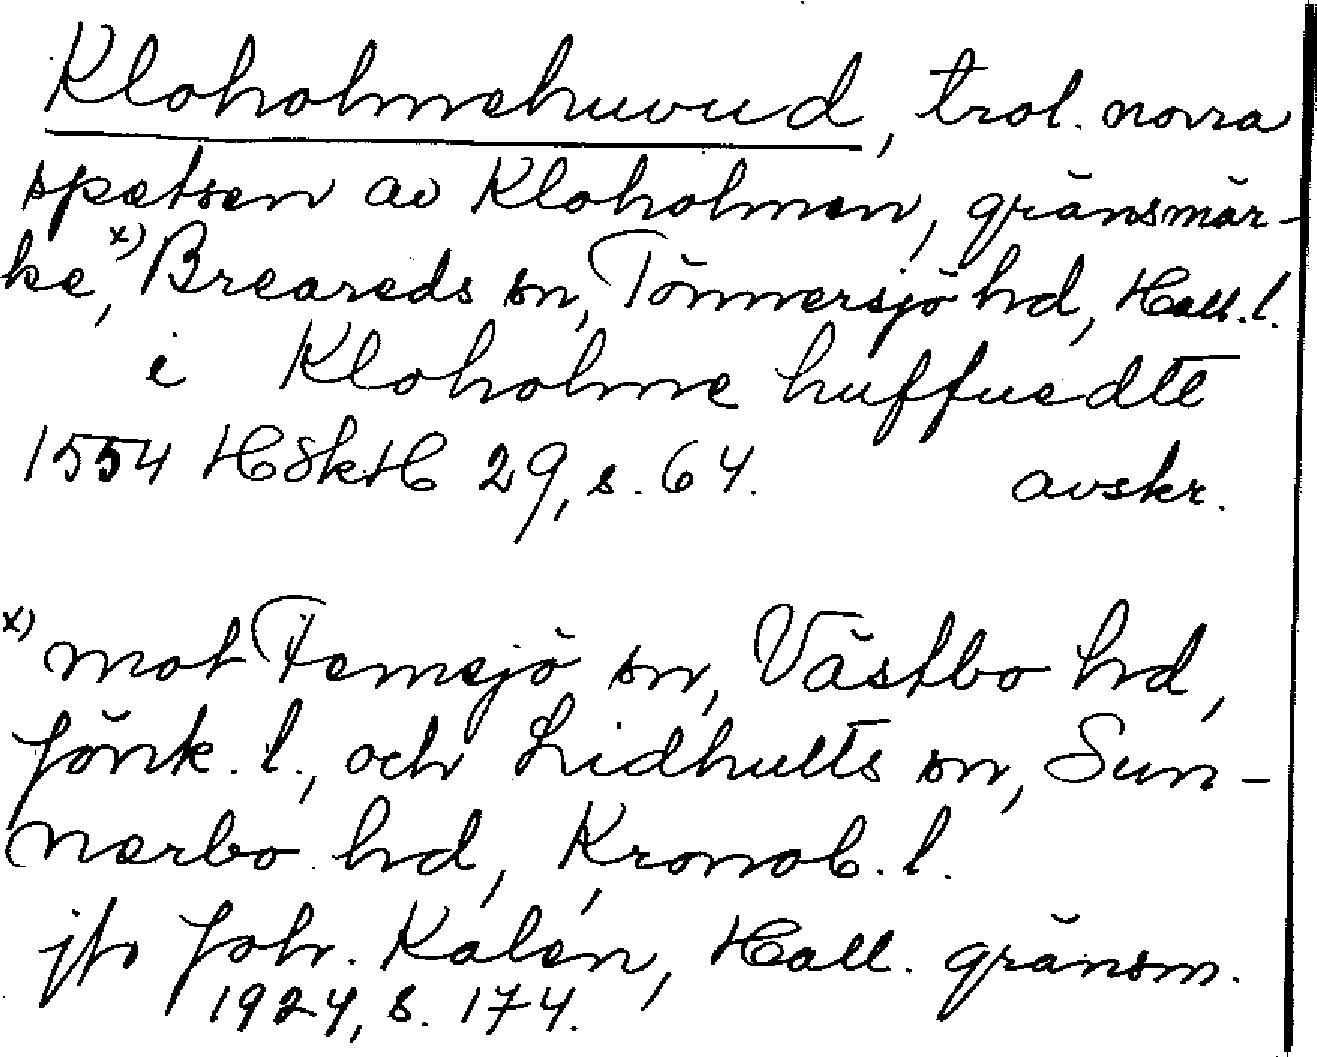 Kloholmehuvud, trol. norra
spetsen av Kloholmen, gränsmär-
ke,x) Breareds sn, Tönnersjö hd, Hall. l.
i Kloholme huffuedtt
1554 HSkH 29, s. 64. avskr.
x) mot Femsjö sn, Västbo hd,
Jönk. l., och Lidhults sn, Sun-
nerbo hd, Kronob. l.
jfr Joh. Kalén, Hall. gränsm.
1924, s. 174.